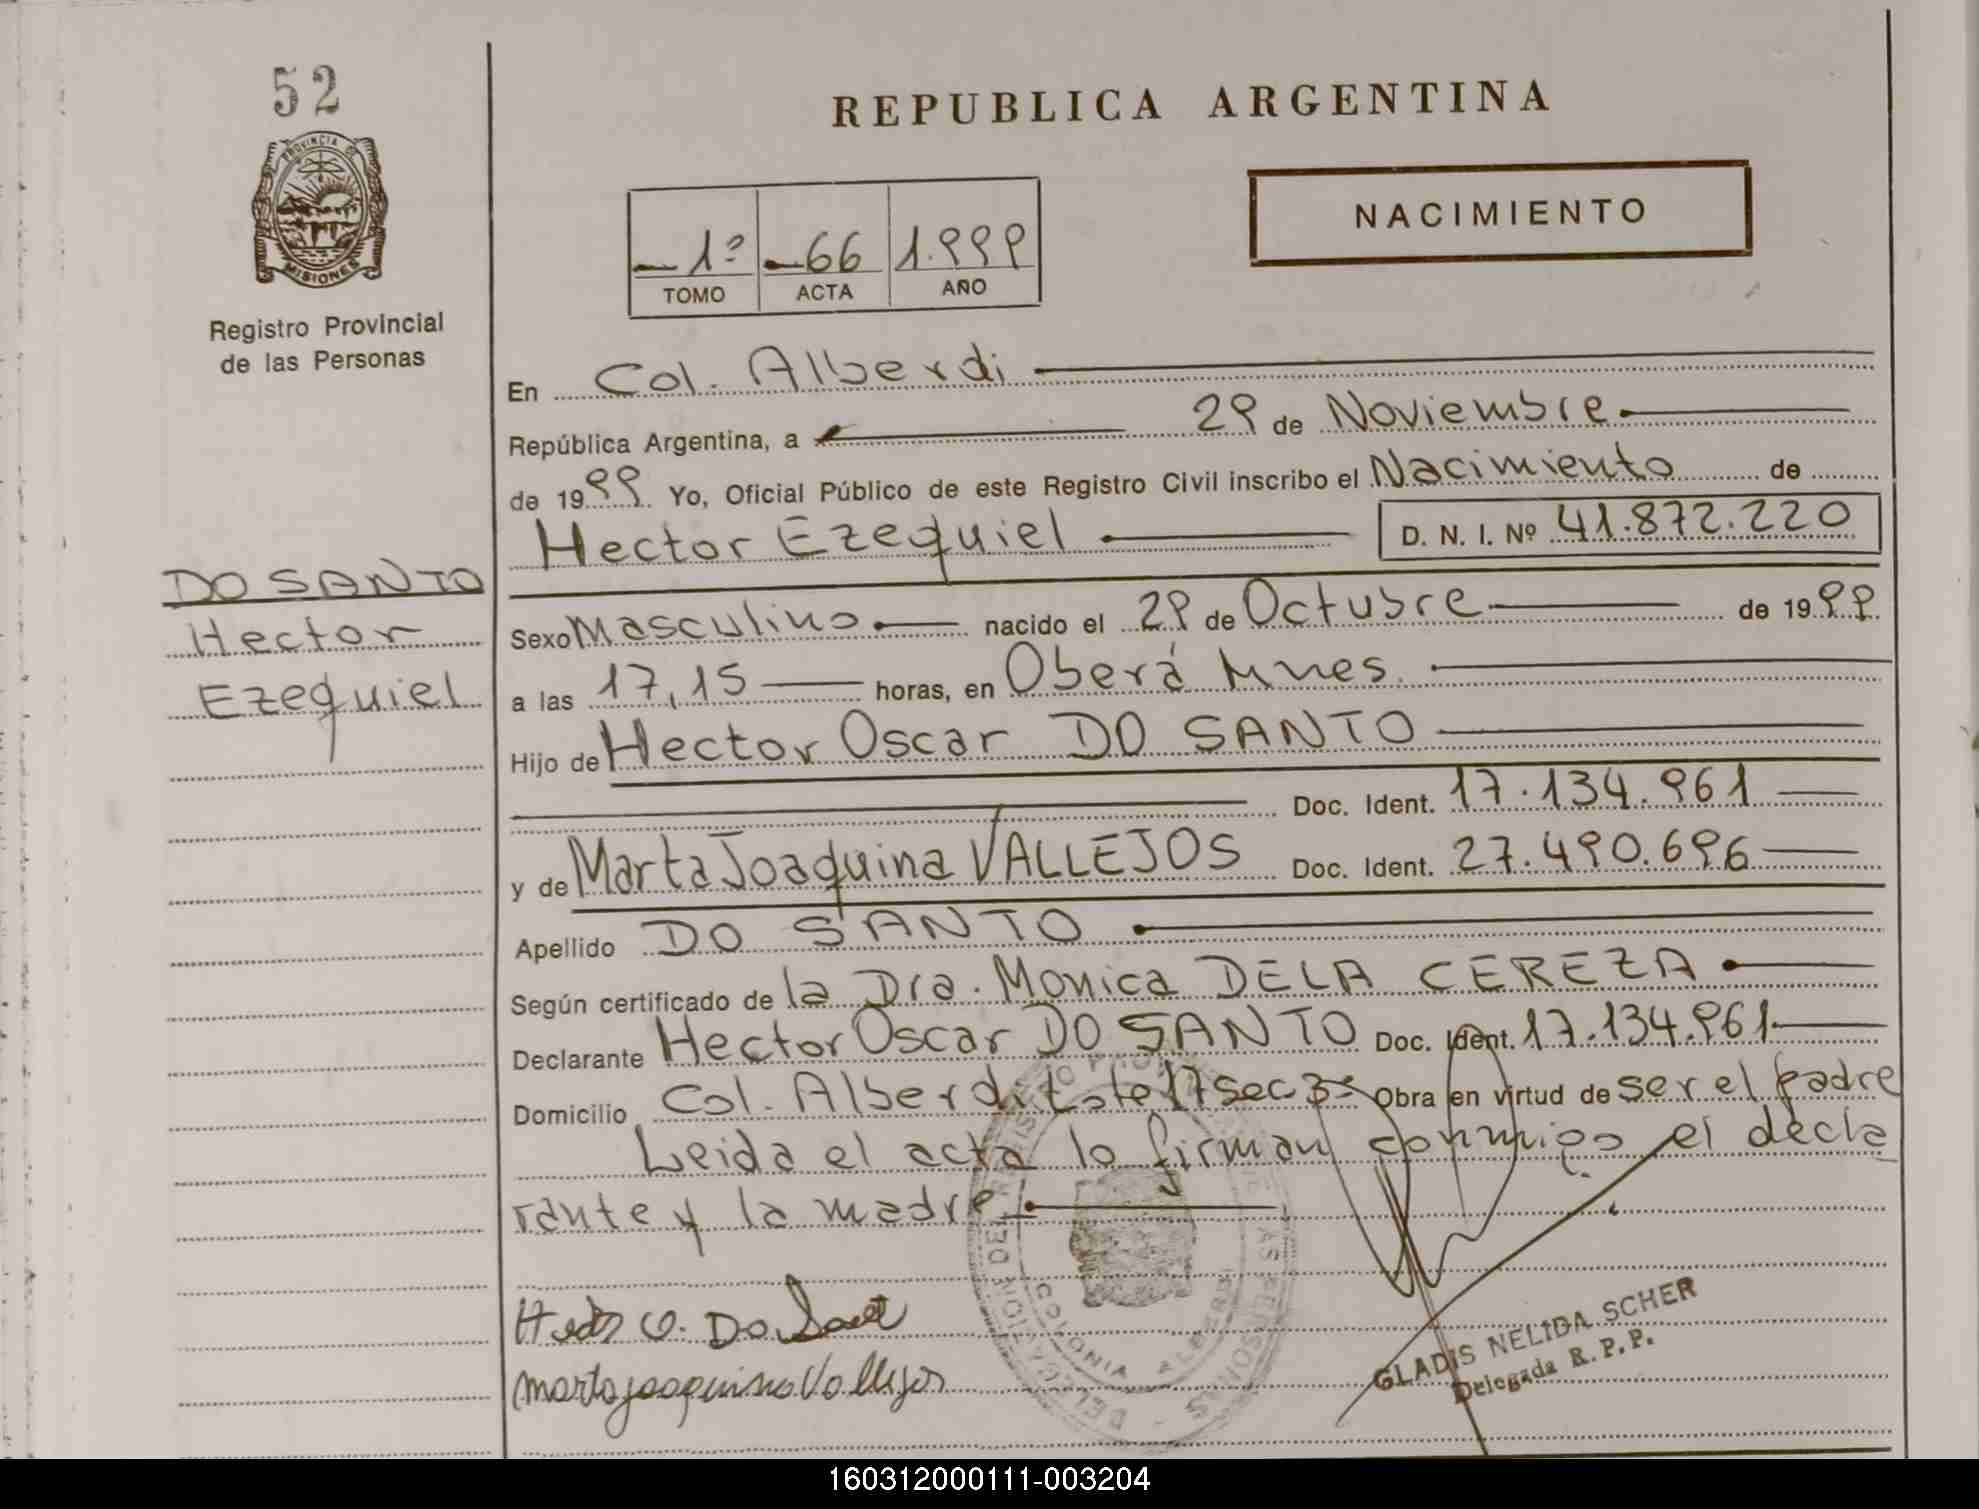 52
PROVINCIA DE
MISIONES
Registro Provincial
de las Personas
REPUBLICA ARGENTINA
NACIMIENTO
1º 66 1.999
TOMO ACTA AÑO
En Col. Alberdi
República Argentina, a 29 de Noviembre
de 1999 Yo, Oficial Público de este Registro Civil inscribo el Nacimiento de
Hector Ezequiel D. N. I. Nº 41.872.220
DO SANTO
Hector
Ezequiel
Sexo Masculino nacido el 29 de Octubre de 1999
a las 17,15 horas, en Oberá Mnes.
Hijo de Hector Oscar DO SANTO
Doc. Ident. 17.134.961
y de Marta Joaquina VALLEJOS Doc. Ident. 27.490.696
Apellido DO SANTO
Según certificado de la Dra. Monica DELA CEREZA
Declarante Hector Oscar DO SANTO Doc. Ident. 17.134.961
Domicilio Col. Alberdi sec Obra en virtud de ser el padre
Leida el acta lo firman conmigo el decla
rante y la madre
Hector O. Do Santo
marta joaquina Vallejos
COLONIA ALBERDI
GLADIS NELIDA SCHER
Delegada R. P. P.
160312000111-003204